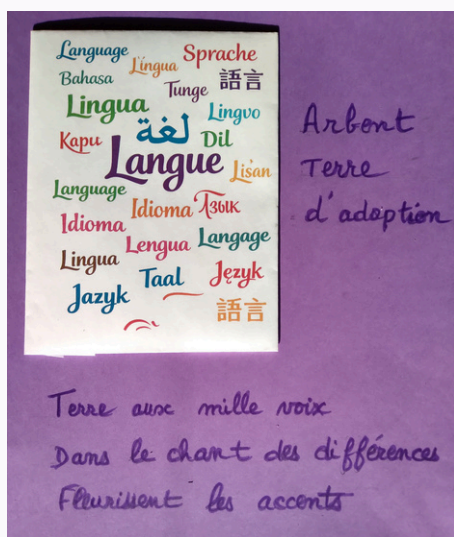 Language
Lingua
Sprache
Bahasa
Tunge
語言
Lingua
Lingvo
Kapu
لغة
Dil
Langue
Lisan
Language
Idioma
Язык
Idioma
Lengua
Langage
Lingua
Taal
Język
Jazyk
語言
Arbent
Terre
d'adoption
Terre aux mille voix
Dans le chant des différences
Fleurissent les accents